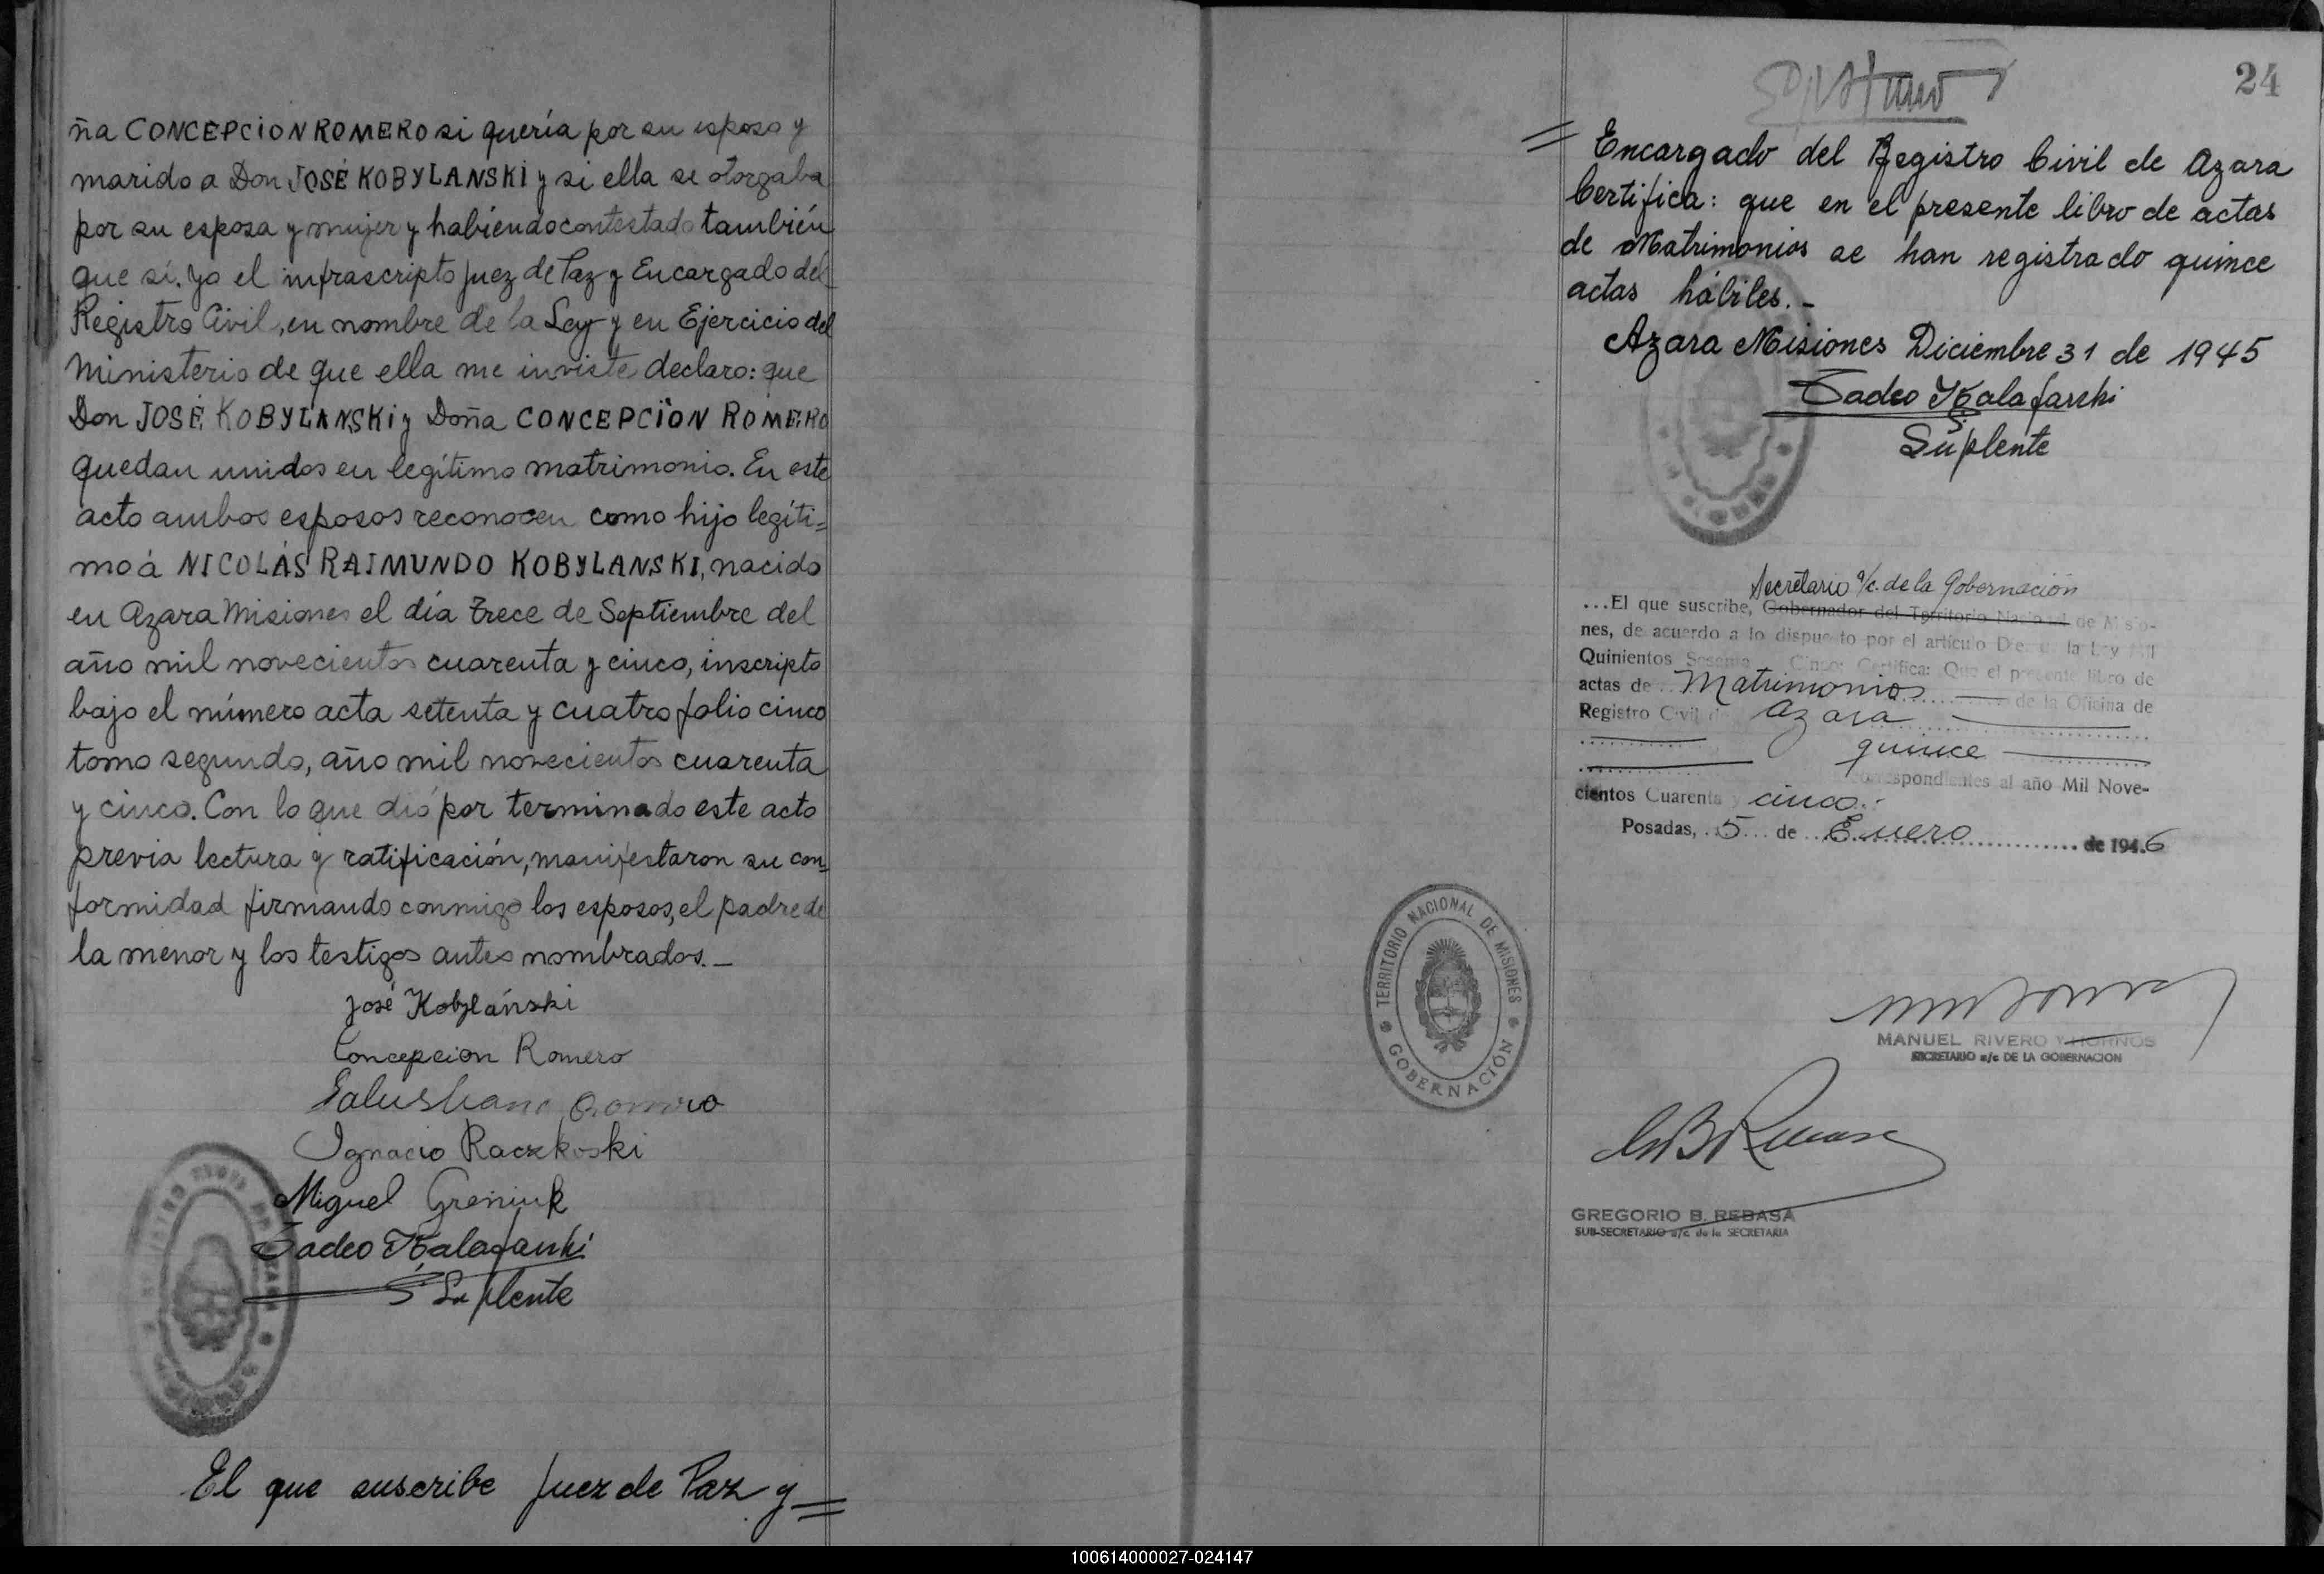 ña CONCEPCION ROMERO si quería por su esposo y
marido a Don JOSÉ KOBYLANSKI y si ella se otorgaba
por su esposa y mujer y habiendo contestado también
que sí. Yo el infrascripto Juez de Paz y Encargado del
Registro Civil, en nombre de la Ley y en Ejercicio del
Ministerio de que ella me inviste declaro: que
Don JOSÉ KOBYLANSKI y Doña CONCEPCION ROMERO
quedan unidos en legítimo matrimonio. En este
acto ambos esposos reconocen como hijo legíti=
mo á NICOLÁS RAIMUNDO KOBYLANSKI, nacido
en Azara Misiones el día trece de Septiembre del
año mil novecientos cuarenta y cinco, inscripto
bajo el número acta setenta y cuatro folio cinco
tomo segundo, año mil novecientos cuarenta
y cinco. Con lo que dió por terminado este acto
previa lectura y ratificación, manifestaron su con_
formidad firmando conmigo los esposos, el padre de
la menor y los testigos antes nombrados._
José Kobylański
Concepcion Romero
Romero
Ignacio Raczkoski
Miguel Greniuk
Tadeo Kalafarski
S. Suplente
El que suscribe Juez de Paz y =
24
= Encargado del Registro Civil de Azara
Certifica: que en el presente libro de actas
de Matrimonios se han registrado quince
actas hábiles._
Azara Misiones Diciembre 31 de 1945
Tadeo Kalafarski
S.
Suplente
Secretario a/c. de la Gobernación
...El que suscribe, Gobernador del Territorio Nacional de Misio-
nes, de acuerdo a lo dispuesto por el artículo Diez de la Ley Mil
Quinientos Sesenta y Cinco: Certifica: Que el presente libro de
actas de Matrimonios de la Oficina de
Registro Civil de Azara
quince
correspondientes al año Mil Nove-
cientos Cuarenta y cinco.-
Posadas, 5 de Enero de 1946
TERRITORIO NACIONAL DE MISIONES
GOBERNACIÓN
MANUEL RIVERO Y HORNOS
SECRETARIO a/c DE LA GOBERNACION
GREGORIO B. REBASA
SUB-SECRETARIO a/c de la SECRETARIA
100614000027-024147